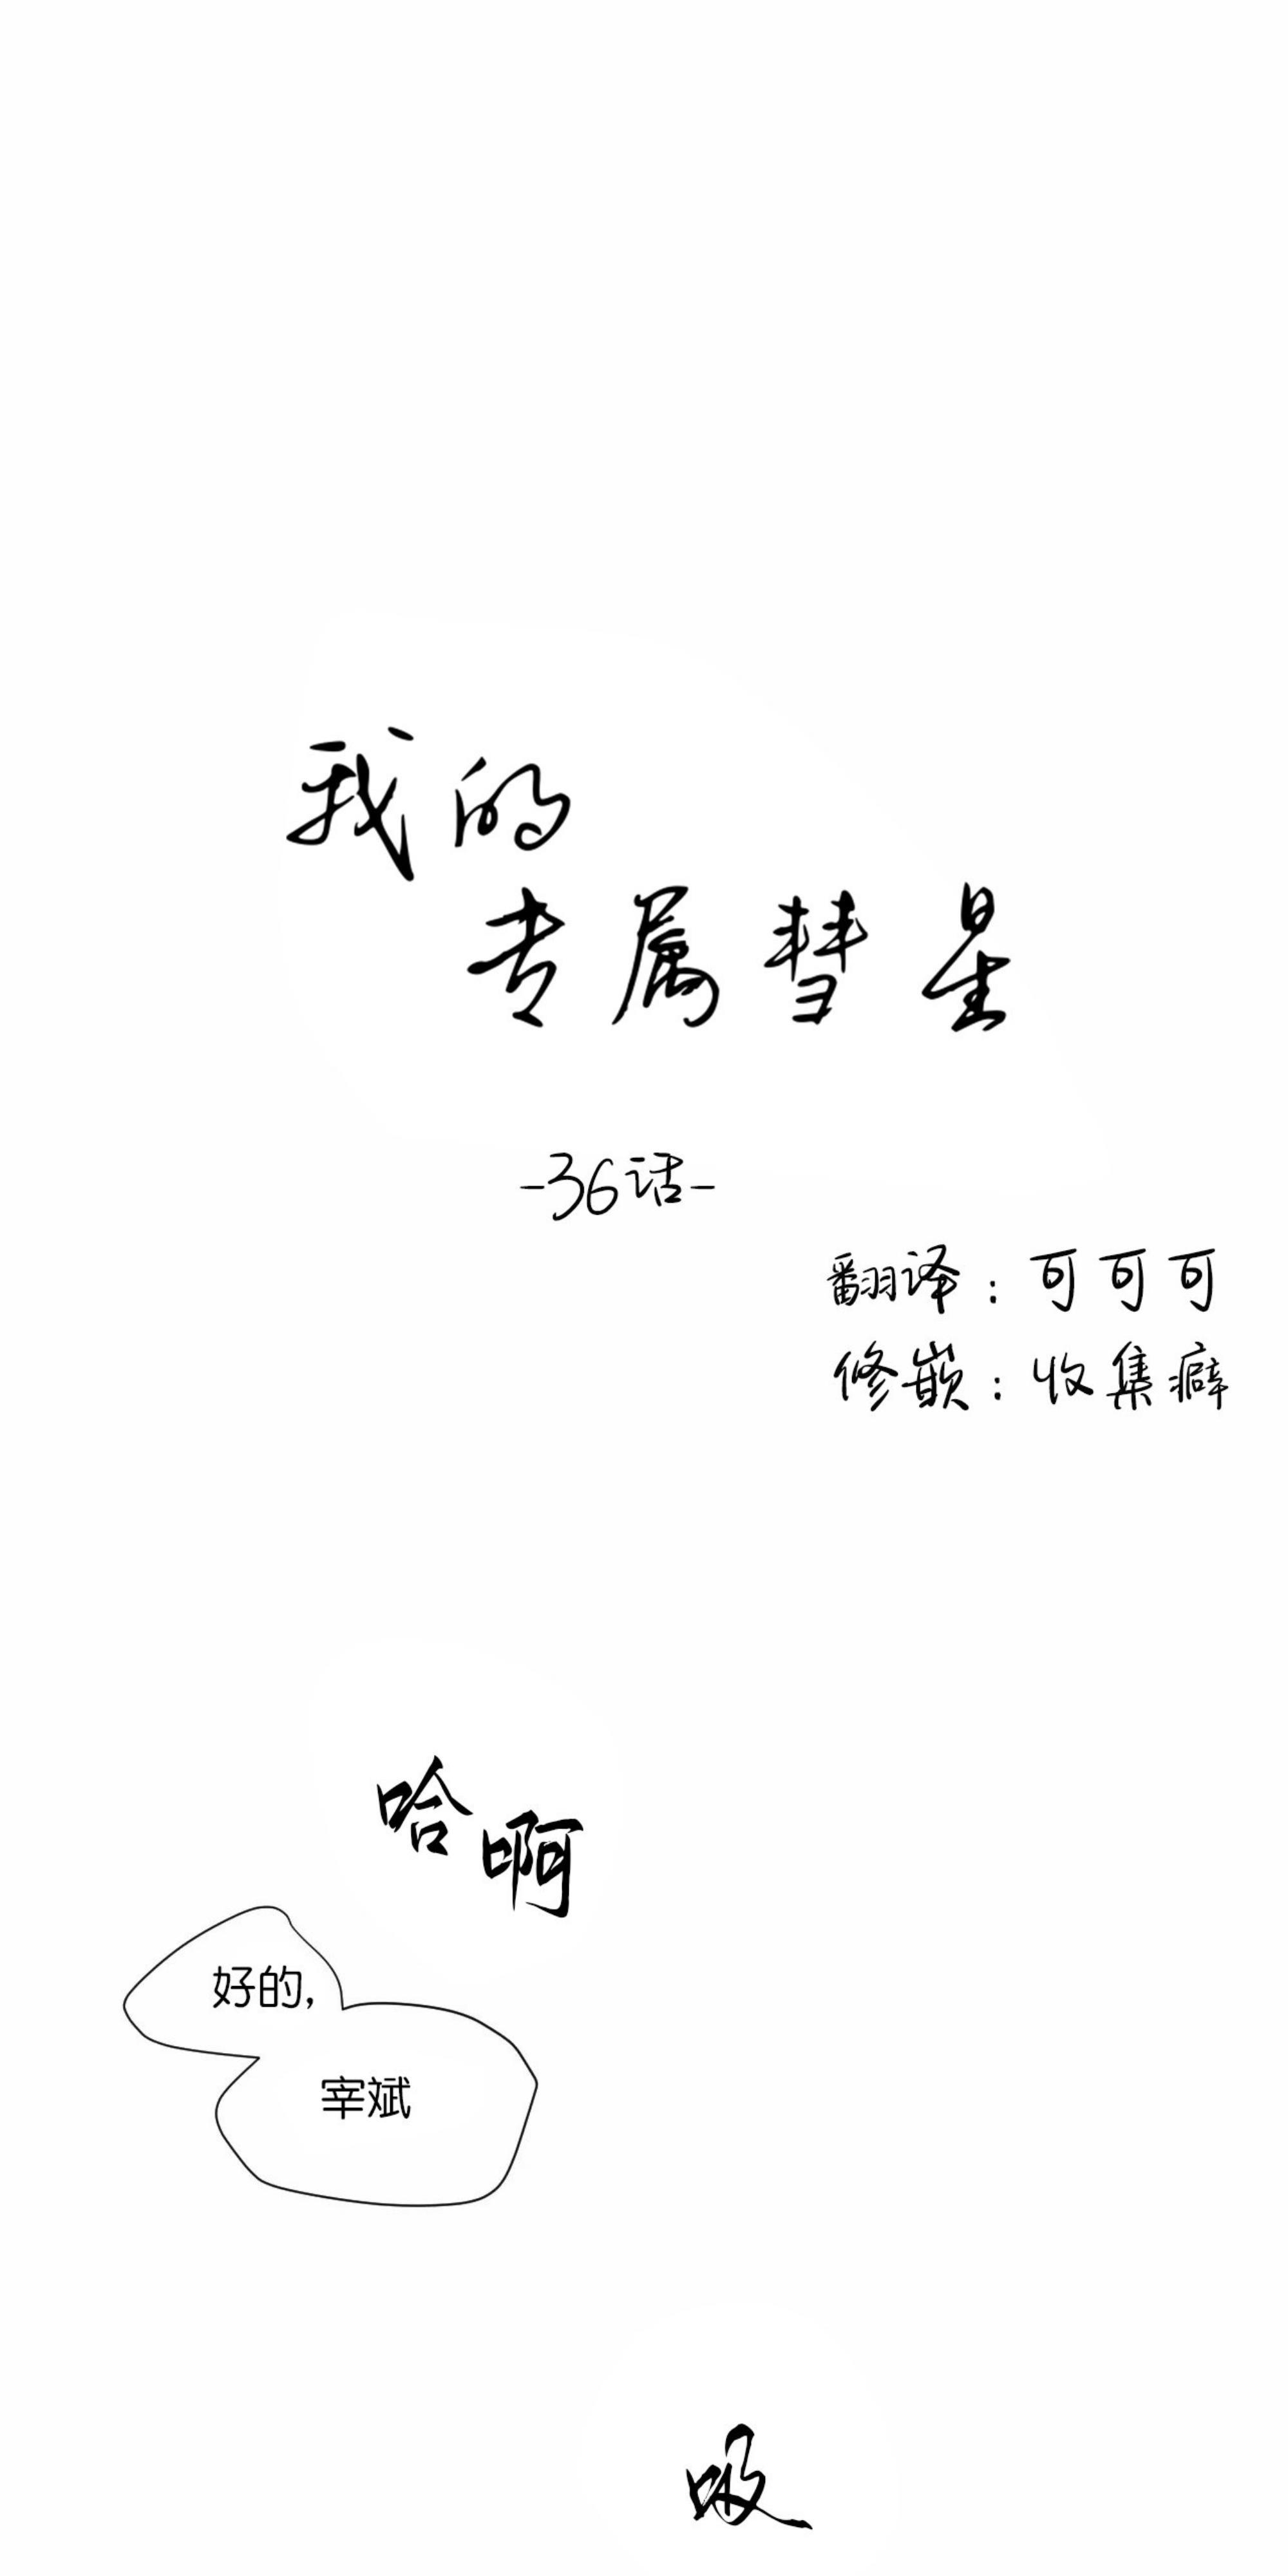 我的
专属彗星
-36话-
翻译：可可可
修嵌：收集癖
哈啊
好的,
宰斌
吸